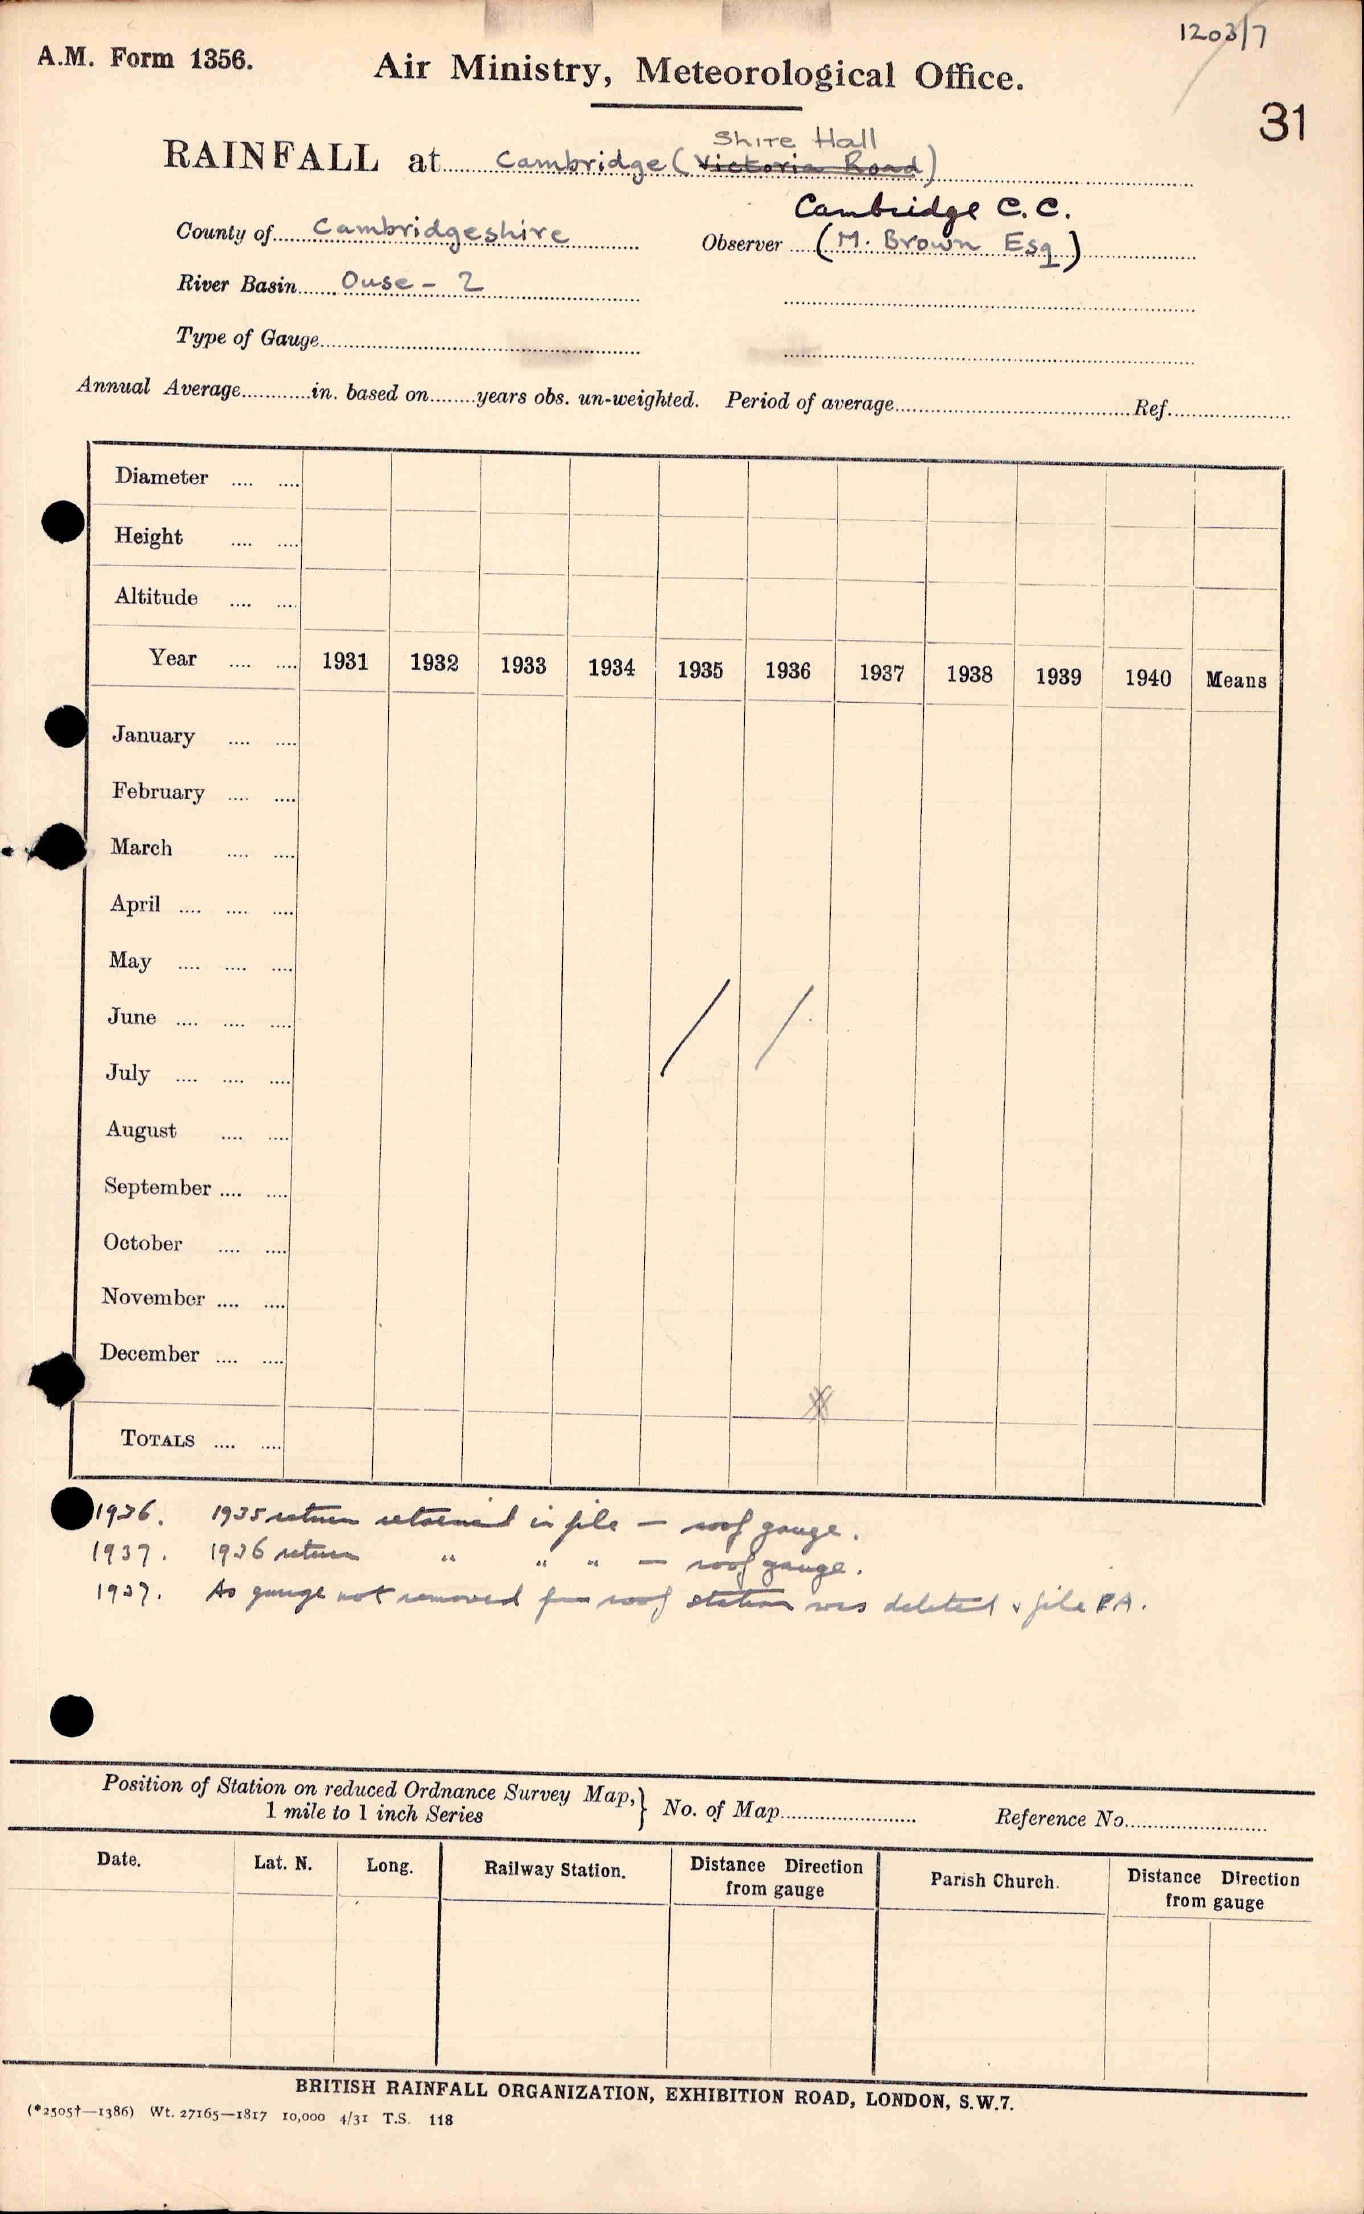 1203/7
A.M. Form 1356.
Air Ministry, Meteorological Office.
31
Shire Hall
RAINFALL at Cambridge (Victoria Road)
Cambridge C.C.
County of Cambridgeshire Observer (M. Brown Esq)
River Basin Ouse - 2
Type of Gauge
Annual Average in. based on years obs. un-weighted. Period of average Ref.
Diameter
Height
Altitude
Year 1931 1932 1933 1934 1935 1936 1937 1938 1939 1940 Means
January
February
March
April
May
June
July
August
September
October
November
December
TOTALS
1936. 1935 return retained in file — roof gauge.
1937. 1936 return " " " — roof gauge.
1937. As gauge not removed from roof station was deleted & file P.A.
Position of Station on reduced Ordnance Survey Map,
1 mile to 1 inch Series } No. of Map Reference No.
Date. Lat. N. Long. Railway Station. Distance Direction from gauge Parish Church. Distance Direction from gauge
BRITISH RAINFALL ORGANIZATION, EXHIBITION ROAD, LONDON, S.W.7.
(*2505†—1386) Wt. 27165—1817 10,000 4/31 T.S. 118